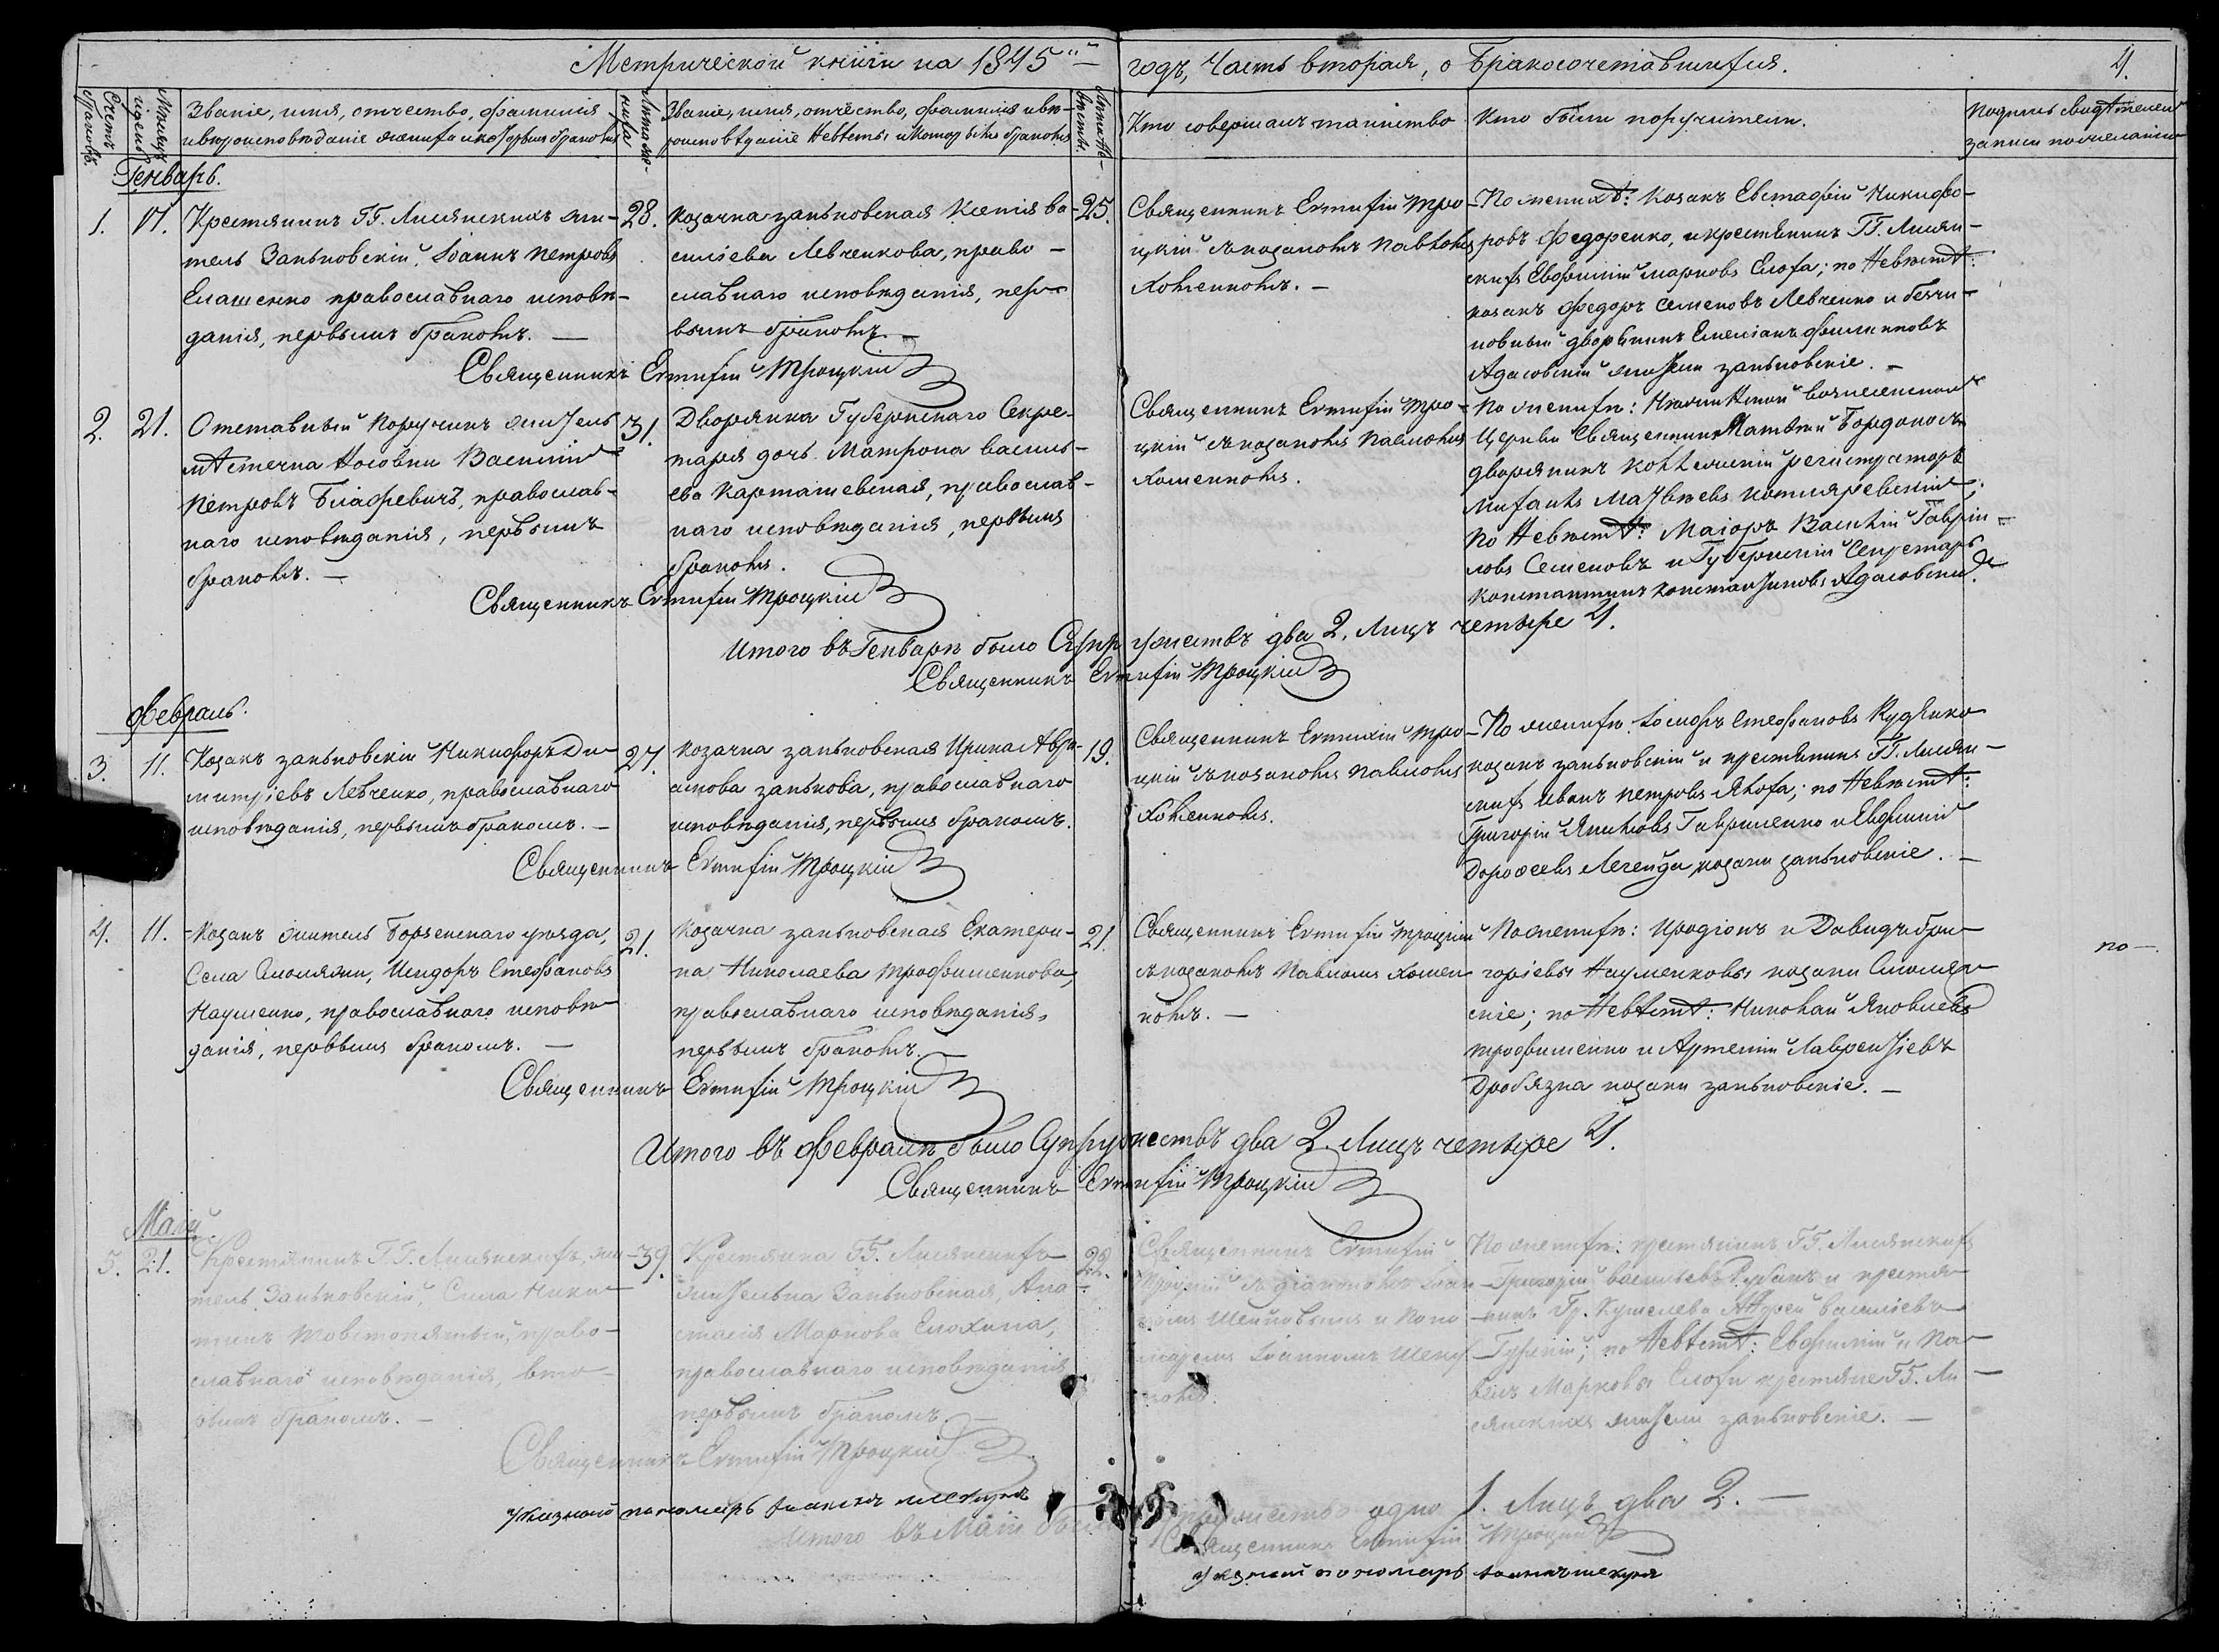 Метрической книги на 1845й годъ, Часть вторая, о бракосочетавшихся. 4.
Счетъ браковъ.
Мѣсяцъ и день
Званіе, имя, отчество, фамилія
и вѣроисповѣданіе жениха и которымъ бракомъ
Лѣта жениха
Званіе, имя, отчество, фамилія и вѣ-
роисповѣданіе Невѣсты и которымъ бракомъ
Лѣта Невѣсты.
Кто совершалъ таинство
Кто были поручители.
Подпись свидѣтелей
записи по желанію
Генварь.
1. 17.
Крестянинъ ГГ. Лисянскихъ жи-
тель Заньковскій, Іоаннъ Петровъ
Елашенко православнаго исповѣ-
данія, первымъ бракомъ. —
28.
Козачка заньковская Ксенія Ва-
силіева Левченкова, право-
славнаго исповѣданія, пер-
вымъ бракомъ. —
25.
Священникъ Евтихій Тро-
цкій съ козакомъ Павломъ
Хоменкомъ. —
По женихѣ: козакъ Евстафій Никифо-
ровъ Федоренко, и крестянинъ ГГ. Лисян-
скихъ Евфимій Марковъ Елоха; по Невѣстѣ:
козакъ Федоръ Семеновъ Левченко и безчи-
новный дворянинъ Емеліанъ Филиповъ
Адасовскій жители заньковскіе. —
Священникъ Евтихій Троцкій
2. 21.
Отставный Поручикъ житель
мѣстечка Носовки Василій
Петровъ Билафевичъ, православ-
наго исповѣданія, первымъ
бракомъ. —
31.
Дворянка Губернскаго Секре-
таря дочь Матрона Василь-
ева Карташевская, православ-
наго исповѣданія, первымъ
бракомъ.
Священникъ Евтихій Тро-
цкій съ козакомъ Павломъ
Хоменкомъ.
По женихѣ: Вознесенской
Церкви Священникъ Матвѣй Бордоносъ
дворянинъ Коллежскій регистраторъ
Михаилъ Матвѣевъ Котляревскій;
По Невѣстѣ: Маіоръ Василій Гаврі-
ловъ Семеновъ и Губернскій Секретарь
Константинъ Константиновъ Адасовскій.
Священникъ Евтихій Троцкій
Итого въ Генварѣ было Супружествъ два 2, Лицъ четыре 4.
Священникъ Евтихій Троцкій
Февраль.
3. 11.
Козакъ заньковскій Никифоръ Ди-
митріевъ Левченко, православнаго
исповѣданія, первымъ бракомъ. —
27.
Козачка заньковская Ирина Авра-
амова Занькова, православнаго
исповѣданія, первымъ бракомъ.
19.
Священникъ Евтихій Тро-
цкій съ козакомъ Павломъ
Хоменкомъ.
По женихѣ Іосифъ Стефановъ Кудѣнко
козакъ заньковскій и крестянинъ ГГ. Лисян-
скихъ Иванъ Петровъ Ялоха; по Невѣстѣ:
Григорій Якимовъ Гавриленко и Евфимій
Дорофеевъ Легейда козаки заньковскіе. —
Священникъ Евтихій Троцкій
4. 11.
Козакъ житель Борзенскаго уѣзда,
Села Смоляжи, Исидоръ Стефановъ
Науменко, православнаго исповѣ-
данія, первымъ бракомъ. —
21.
Козачка заньковская Екатери-
на Николаева Трофименкова,
православнаго исповѣданія,
первымъ бракомъ. —
21.
Священникъ Евтихій Троцкій
съ козакомъ Павломъ Хомен-
комъ. —
По женихѣ: Иродіонъ и Давидъ Гри-
горіевы Науменковы козаки Смоляж-
скіе; по Невѣстѣ: Николай Яковлевъ
Трофименко и Артемій Лаврентіевъ
Дробязка козаки заньковскіе. —
по —
Священникъ Евтихій Троцкій
Итого въ Февралѣ было Супружествъ два 2. Лицъ четыре 4.
Священникъ Евтихій Троцкій
Маій
5. 21.
Крестянинъ ГГ. Лисянскихъ, жи-
тель Заньковскій, Сила Ники-
тинъ Товстопятый, право-
славнаго исповѣданія, вто-
рымъ бракомъ. —
39.
Крестянка ГГ. Лисянскихъ
жителька Заньковская, Ана-
стасія Маркова Елохина,
православнаго исповѣданія
первымъ бракомъ. —
22.
Священникъ Евтихій
Троцкій съ діакономъ Іоан-
номъ и Поно-
маремъ Іоанномъ Шеку-
По женихѣ: крестянинъ ГГ. Лисянскихъ
Григорій Васильевъ Рубанъ и крестя-
нинъ Гр. Кушелева Андрей Василіевъ
по Невѣстѣ: Евфимій и Па-
велъ Марковы Елохи крестяне ГГ. Ли-
сянскихъ жители заньковскіе. —
Священникъ Евтихій Троцкій
указной пономарь Іоаннъ Шекура
Итого въ Маіи было Супружество одно 1. Лицъ два 2. —
Священникъ Евтихій Троцкій
указной пономарь Іоаннъ Шекура